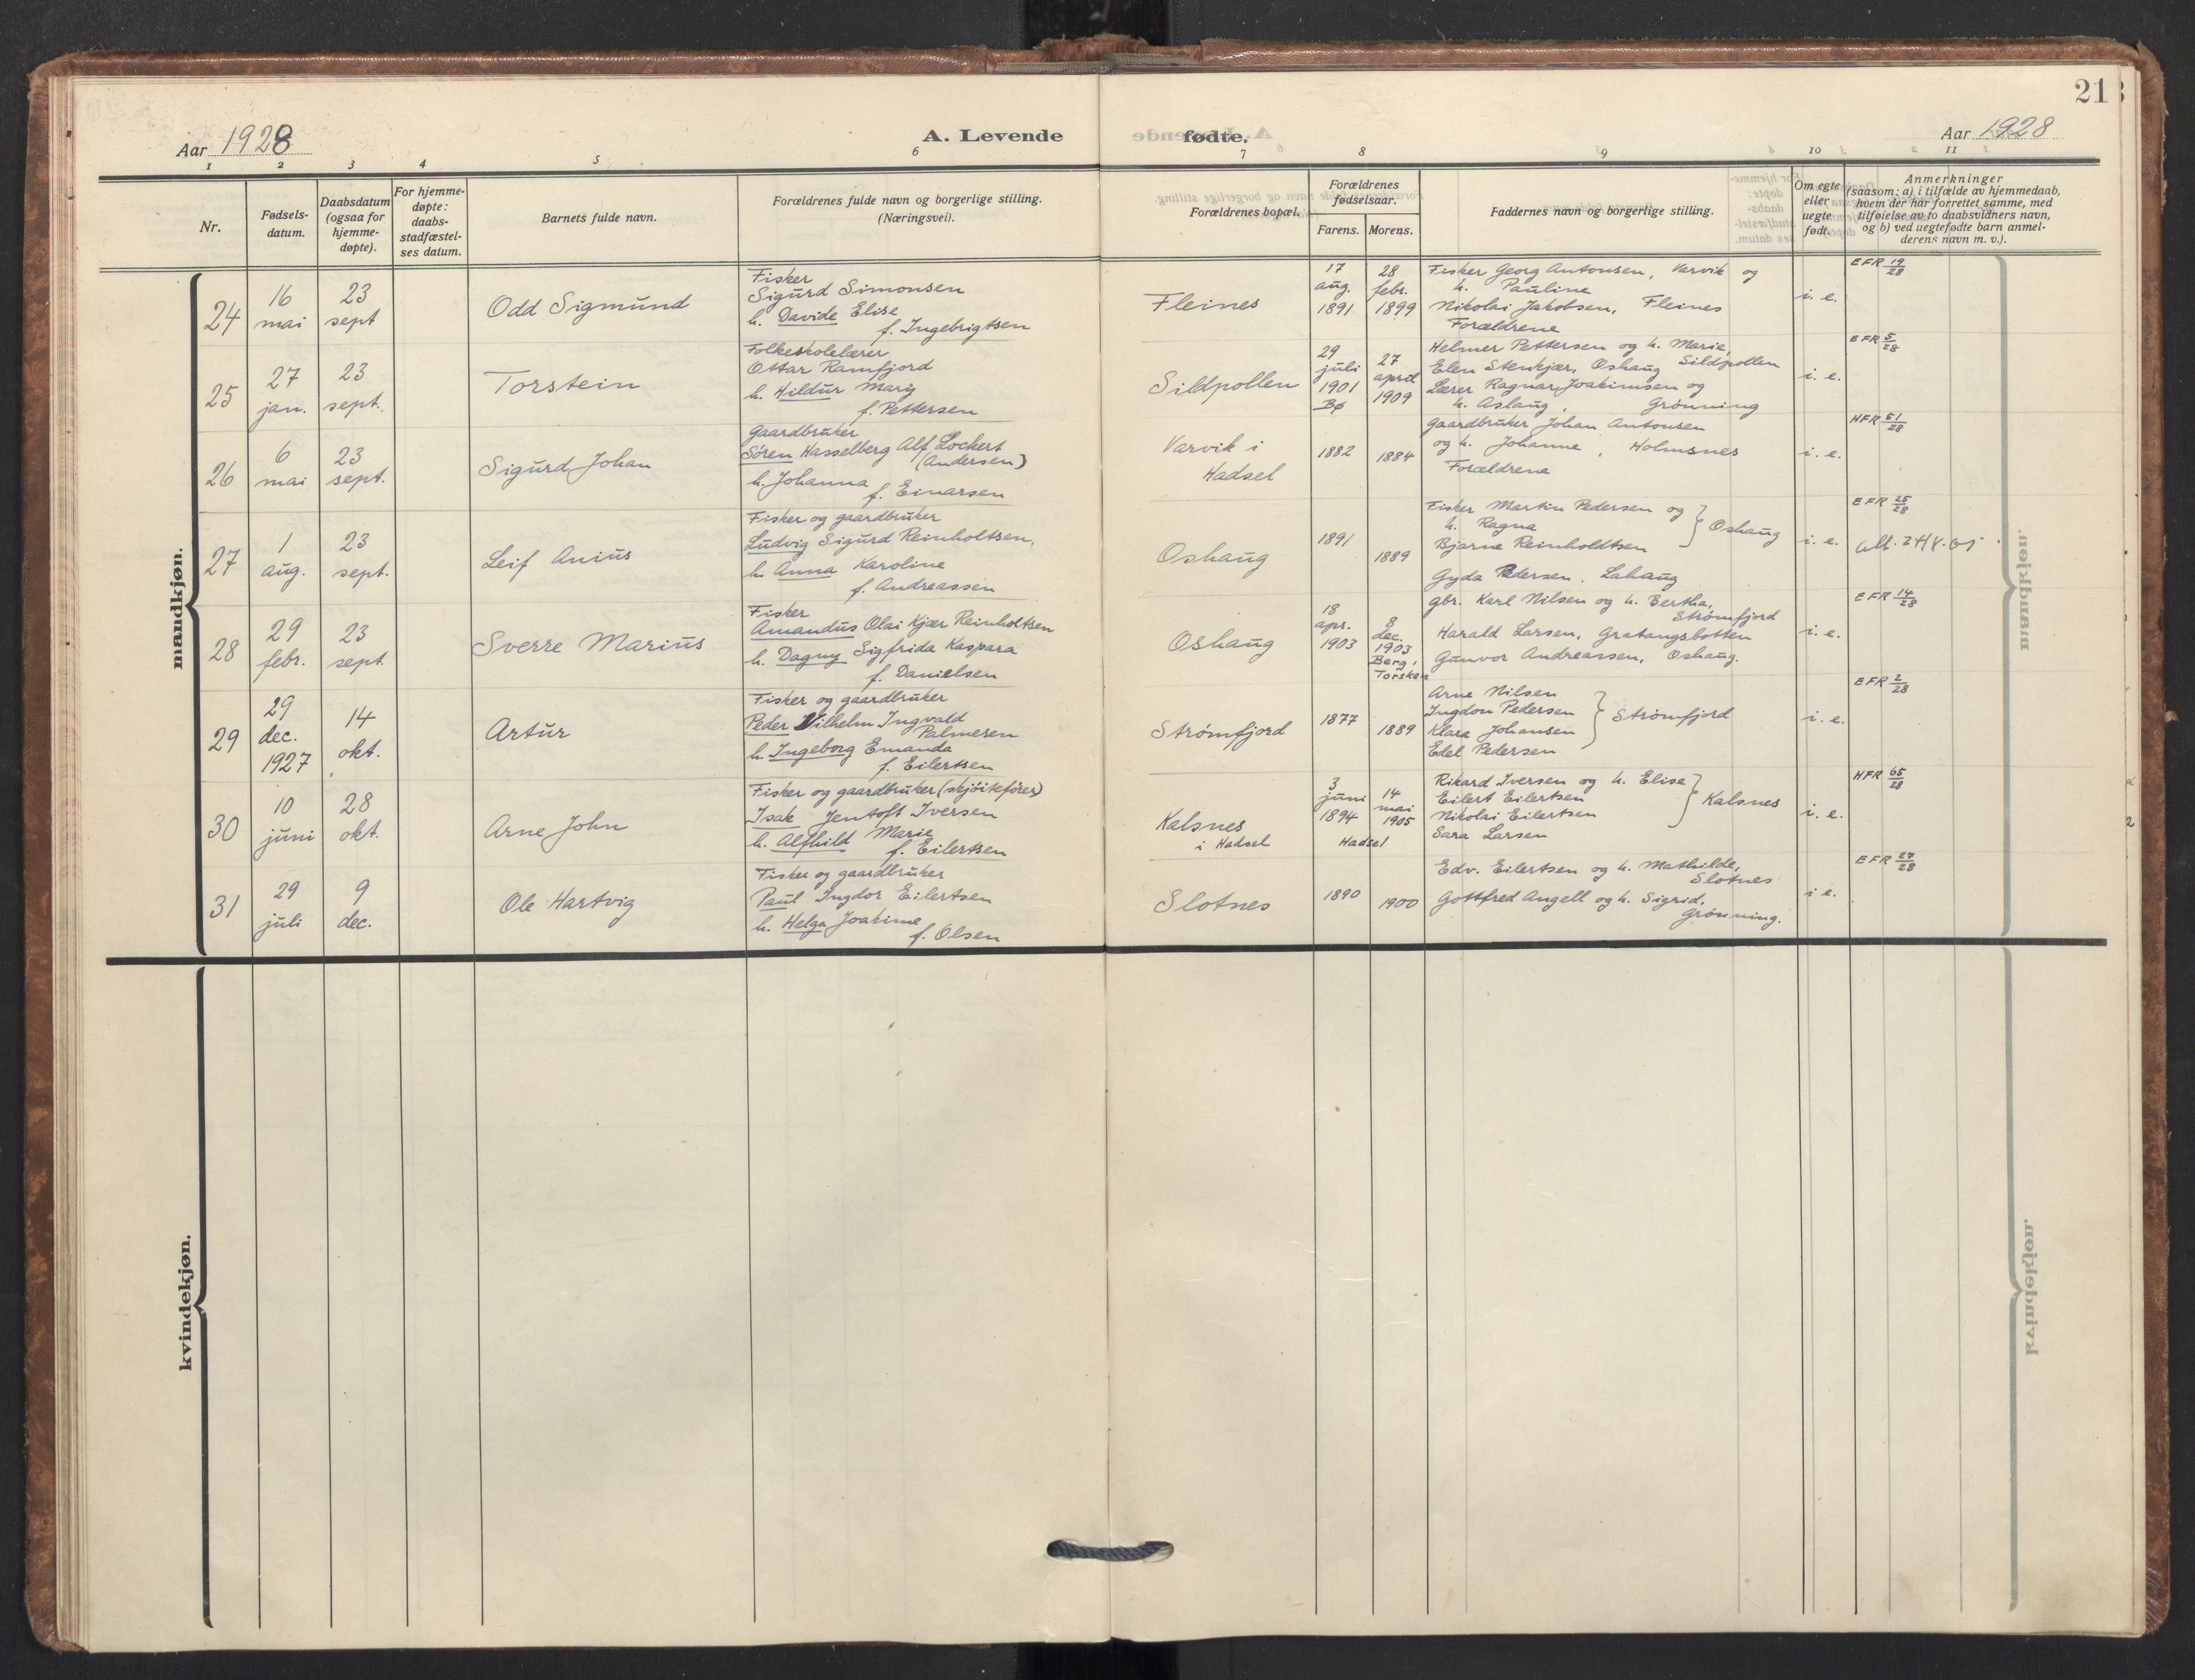 21
Aar 1928
A. Levende
fødte.
Aar 1928
1 2 3 4 5 6 7 8 9 10 11
Nr.
Fødsels-
datum.
Daabsdatum
(ogsaa for
hjemme-
døpte).
For hjemme-
døpte:
daabs-
stadfæstel-
ses datum.
Barnets fulde navn.
Forældrenes fulde navn og borgerlige stilling.
(Næringsvei).
Forældrenes bopæl.
Forældrenes
fødselsaar.
Farens. Morens.
Faddernes navn og borgerlige stilling.
Om egte
eller
uegte
født.
Anmerkninger
(saasom: a) i tilfælde av hjemmedaab,
hvem der har forrettet samme, med
tilføielse av to daabsvidners navn,
og b) ved uegtefødte barn anmel-
derens navn m. v.).
mandkjøn.
24
16
mai
23
sept
Odd Sigmund
Fisker
Sigurd Simonsen
h. Davide Elise
f. Ingebrigtsen
Fleines
17
aug.
1891
28
febr.
1899
Fisker Georg Antonsen, Varvik og
h. Pauline
Nikolai Jakobsen, Fleines
Forældrene
i. e.
EFR 19/28
25
27
jan.
23
sept.
Torstein
Folkeskolelærer
Ottar Ramfjord
h. Hildur Mary
f. Pettersen
Sildpollen
29
juli
1901
Bø
27
april
1909
Helmer Pettersen og h. Marie,
Sildpollen
Elen Stenkjær, Oshaug
Lærer Ragnar Joakimsen og
h. Aslaug, Grønning
i. e.
EFR 5/28
26
6
mai
23
sept.
Sigurd Johan
Gaardbruker
Søren Hasselberg Alf Lockert
(Andersen)
h. Johanna
f. Einarsen
Varvik i
Hadsel
1882
1884
Gaardbruker Johan Antonsen
og h. Johanne, Holmsnes
Forældrene
i. e.
HFR 51/28
27
1
aug.
23
sept.
Leif Anius
Fisker og gaardbruker
Ludvig Sigurd Reinholtsen,
h. Anna Karoline
f. Andreassen
Oshaug
1891
1889
Fisker Martin Pedersen og
h. Ragna
Bjarne Reinholdtsen
Oshaug
Gyda Pedersen. Lahaug
i. e.
EFR 25/28
28
29
febr.
23
sept.
Sverre Marius
Fisker
Amandus Olai Kjær Reinholtsen
h. Dagny Sigfrida Kaspara
f. Danielsen
Oshaug
18
apr.
1903
8
dec.
1903
Berg,
Torsken
gbr. Karl Nilsen og h. Bertha,
Strømfjord
Harald Larsen, Gratangsbotten
Gunvor Andreassen, Oshaug.
i. e.
EFR 14/28
29
29
dec.
1927
14
okt.
Artur
Fisker og gaardbruker
Peder Vilhelm Ingvald
Palmesen
h. Ingeborg Emanda
f. Eilertsen
Strømfjord
1877
1889
Arne Nilsen
Ingdon Pedersen
Klara Johansen
Edel Pedersen
Strømfjord
i. e.
EFR 2/28
30
10
juni
28
okt.
Arne John
Fisker og gaardbruker (skjøitefører)
Isak Jentoft Iversen
h. Alfhild Marie
f. Eilertsen
Kalsnes
i Hadsel
3
juni
1894
14
mai
1905
Hadsel
Rikard Iversen og h. Elise
Eilert Eilertsen
Nikolai Eilertsen
Kalsnes
Sara Larsen
i. e.
HFR 65/28
31
29
juli
9
dec.
Ole Hartvig
Fisker og gaardbruker
Paul Ingdor Eilertsen
h. Helga Joakime
f. Olsen
Slotnes
1890
1900
Edv. Eilertsen og h. Mathilde,
Slotnes
Gottfred Angell og h. Sigrid,
Grønning.
i e.
EFR 27/28
kvindekjøn.